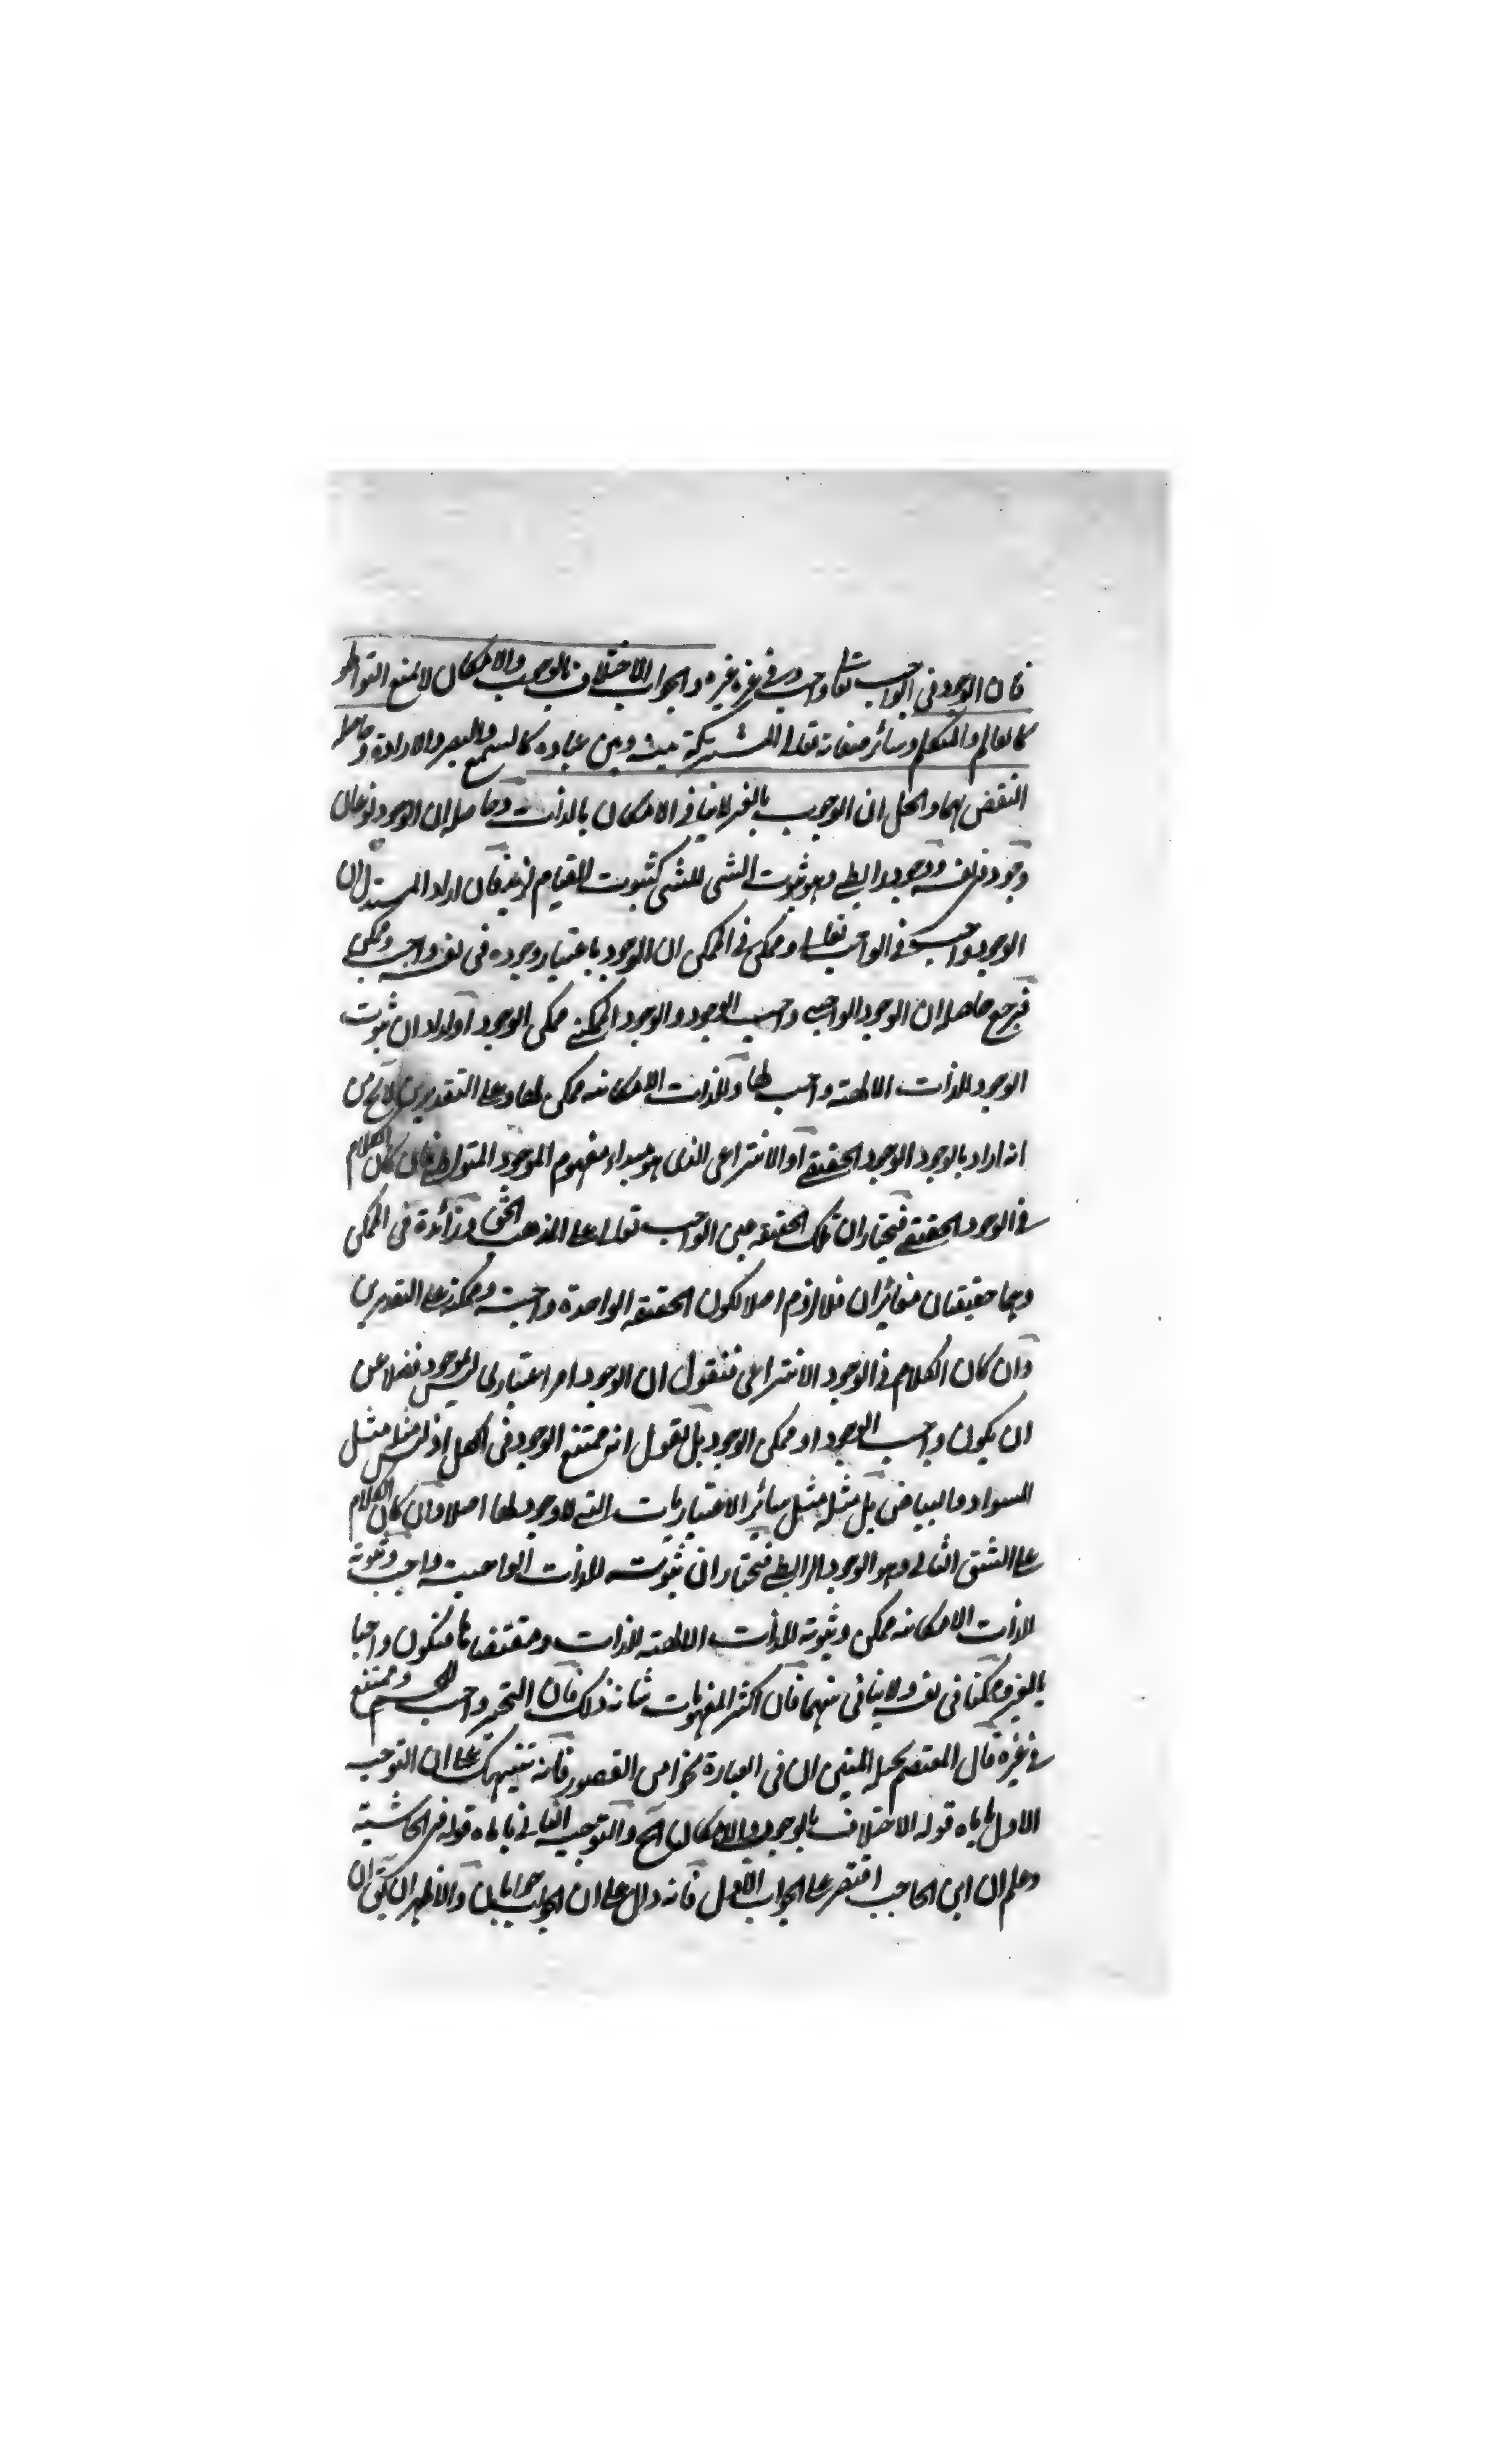 فان الوجود فى الواجب تعالى واجب وفي غيره غيره والجواب الاختلاف بالوجوب والامكان لا يمنع التواطؤ
كالعالم والمتكلم وسائر صفاته تعالى المشتركة بينه وبين عباده كالسمع والبصر والارادة وحاصله
النقض بهما والحل ان الوجوب بالغير لا ينافي الامكان بالذات وحاصله ان الوجود نوعان
وجود فى نفسه ووجود رابطي وهو ثبوت الشى للشى كثبوت القيام لزيد فان اراد المستدل ان
الوجود واجب في الواجب تعالى وممكن في الممكن ان الوجود باعتبار وجوده فى نفسه واجب وممكن
فيرجع حاصله ان الوجود الواجبي واجب الوجود والوجود الممكني ممكن الوجود او اراد ان ثبوت
الوجود للذات الالهية واجب لها وللذات الامكانية ممكن لها وعلى التقديرين لا يخ من
انه اراد بالوجود الوجود الحقيقي او الانتزاعي الذى هو مبداء مفهوم الموجود المتواطي فان كان الكلام
في الوجود الحقيقي فنختار ان تلك الحقيقة عين الواجب تعالى على المذهب الحق وزائدة فى الممكن
وهما حقيقتان متغائران فلا لزوم اصلا لكون الحقيقة الواحدة واجبة وممكنة على التقديرين
وان كان الكلام في الوجود الانتزاعي فنقول ان الوجود امر اعتباري ليس بموجود فضلا عن
ان يكون واجب الوجود او ممكن الوجود بل نقول انه ممتنع الوجود فى الكل اذ ليس مثله مثل
السواد والبياض بل مثله مثل سائر الاعتباريات التي لا وجود لها اصلا وان كان الكلام
على الشق الثانى وهو الوجود الرابطي فنختار ان ثبوته للذات الواجبية واجب وثبوته
للذات الامكانية ممكن وثبوته للذات الالهية للذات ومقتضاها فيكون واجبا
بالغير وممكنا فى نفسه ولا ينافى بينهما فان اكثر المفهومات شانه ذلك فان التحيز واجب للجسم وممتنع
في غيره قال المعتصم بحبله المتين ان فى العبارة نحوا من القصور فانه تنبيهك على ان التوجيه
الاول ياباه قوله الاختلاف بالوجوب والامكان الخ والتوجيه الثاني ياباه قوله فى الحاشية
وعلم ان ابن الحاجب اقتصر على الجواب الاول فانه دال على ان الجواب جوابان والاظهر ان يقق ان